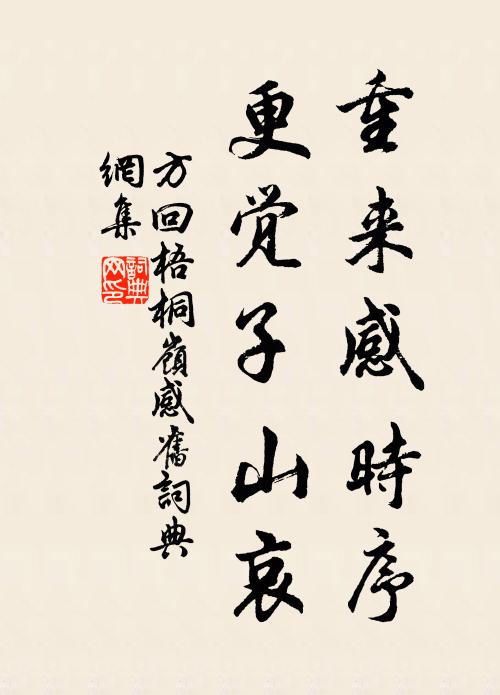 重来感時序
更覚子山哀
方回梧桐嶺感舊詞典
網集
詞典網印